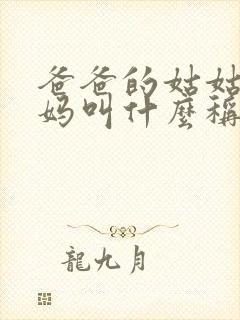 爸爸的姑姑
妈叫什麽稱
龍九月